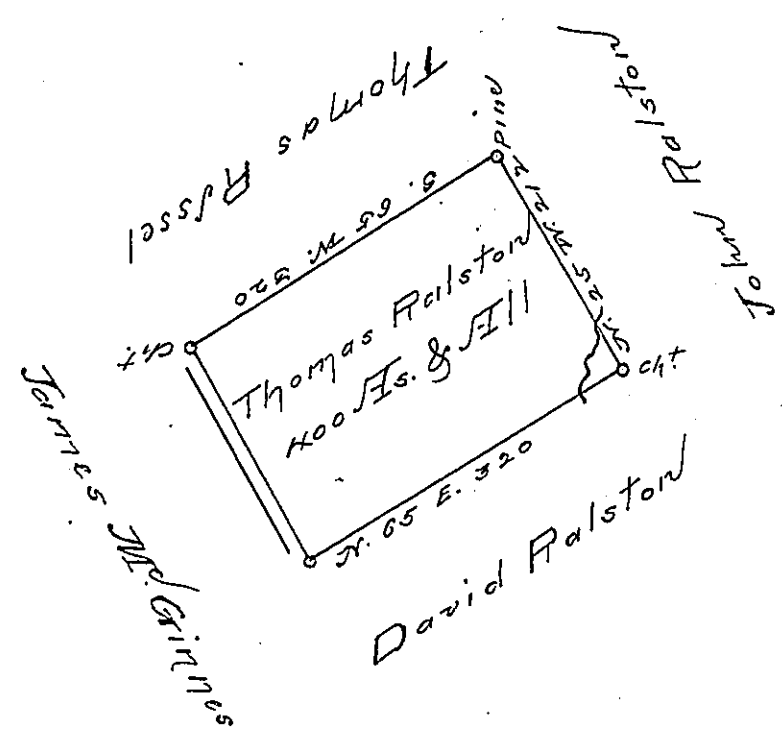 Thomas Russel
John Ralston
Pine
S. 65 W. 320
N. 25 W. 212
Thomas Ralston
400 As. & All
Cht.
Cht
N. 65 E. 320
James McGinnes
David Ralston